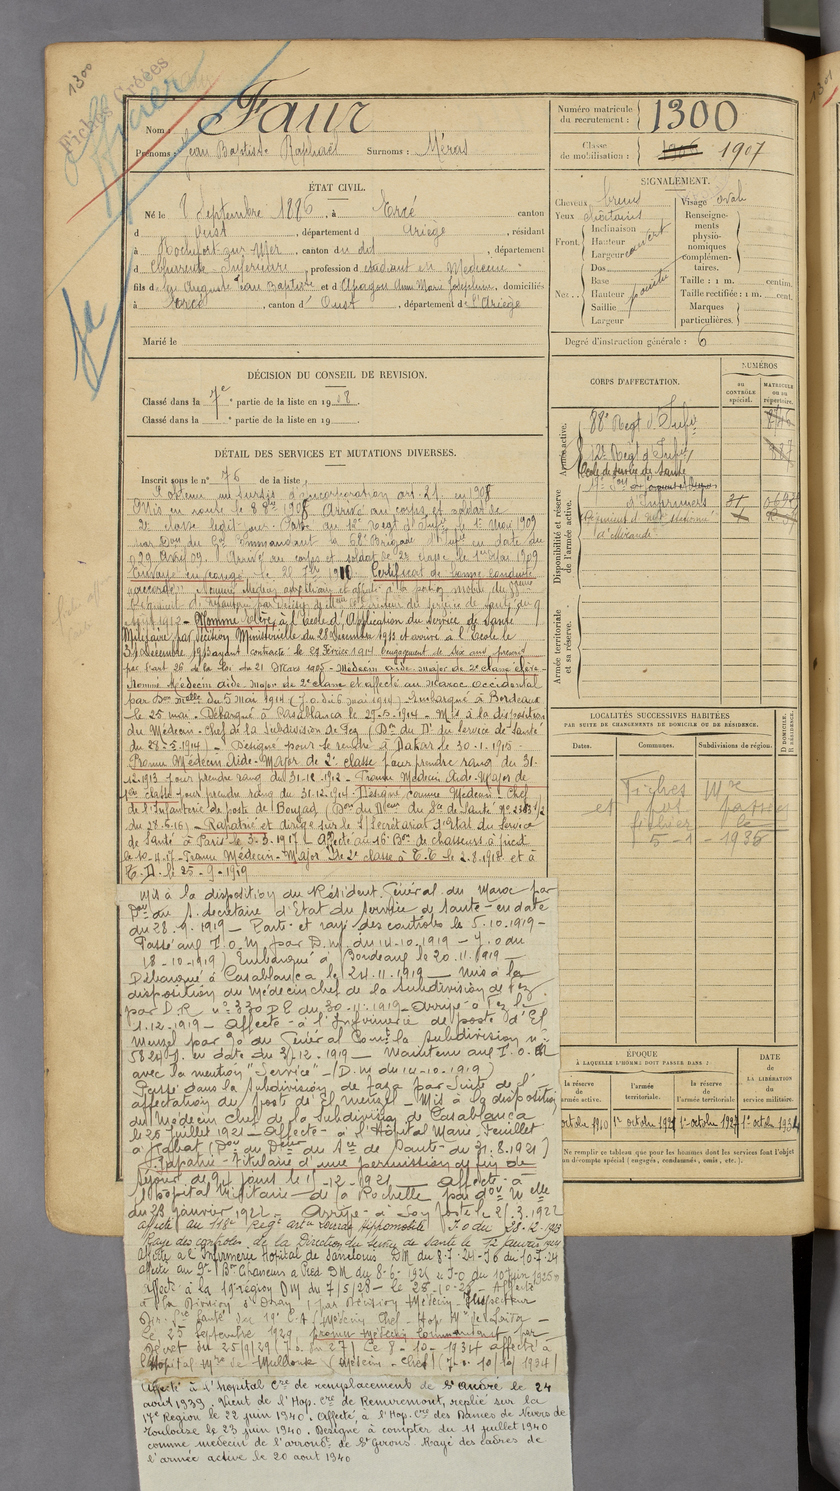 1300
Fiches Créées
Nom : Faur
Prénoms : Jean Baptiste Raphaël Surnoms : Méras
Numéro matricule du recrutement : 1300
Classe de mobilisation : 1906 1907
ÉTAT CIVIL.
Né le 8 Septembre 1886, à Ercé canton
d Oust, département d Ariège, résidant
à Rochefort-sur-Mer, canton du dit, département
d Charente Inférieure, profession d étudiant en Médecine
fils de Auguste Jean Baptiste et d Anne Marie Joséphine, domiciliés
à Ercé, canton d' Oust, département de l'Ariège
Marié le
SIGNALEMENT.
Cheveux bruns Visage ovale
Yeux
Front. Inclinaison
Hauteur
Largeur couvert
Nez. Dos
Base
Hauteur pointu
Saillie
Largeur
Renseignements physionomiques complémentaires.
Taille : 1 m. centim.
Taille rectifiée : 1 m. cent.
Marques particulières.
Degré d'instruction générale : 6
DÉCISION DU CONSEIL DE REVISION.
Classé dans la 7e partie de la liste en 1908.
Classé dans la e partie de la liste en 19
DÉTAIL DES SERVICES ET MUTATIONS DIVERSES.
Inscrit sous le n° 76 de la liste
A obtenu un sursis d'incorporation art. 21 en 1908
Mis en route le 8 8bre 1908. Arrivé au corps et soldat de
2e classe le dit jour. Passé au 12e Regt d'Infie le 1er Mai 1909
par Don du Gal Commandant la 68e Brigade d'Infie en date du
29 Avril 09. Arrivé au corps et soldat de 2e classe le 1er Mai 1909
Envoyé en congé le 25 7bre 1910 Certificat de bonne conduite
accordé. Nommé Médecin auxiliaire et affecté à la portion mobile du
Régiment d'Infanterie par décision du directeur du service de santé du 9
1912 - Nommé élève à l'école d'Application du Service de Santé
Militaire par décision Ministérielle du 28 décembre 1913 et arrivé à l'école le
31 décembre 1913 ayant contracté le 27 Février 1914 l'engagement de six ans prescrit
par l'art 26 de la Loi du 21 Mars 1905 - Médecin aide-major de 2e classe élève
Nommé Médecin aide-major de 2e classe et affecté au Maroc Occidental
par Don Mielle du 5 mai 1914 (J.O. du 6 mai 1914) Embarqué à Bordeaux
le 25 mai - Débarqué à Casablanca le 29-5-1914 - Mis à la disposition
du Médecin-Chef de la Subdivision de Fez (Don du Dr du Service de Santé
du 29-5-1914) - Désigné pour se rendre à Dakar le 30-1-1915 -
Promu Médecin Aide-Major de 2e classe pour prendre rang du 31-
12-1913 pour prendre rang du 31-12-1912 - Promu Médecin Aide-Major de
1ère classe pour prendre rang du 31-12-1914 - Désigné comme Médecin Chef
de l'Infirmerie de poste de Boujad
du 28-6-16) - Rapatrié et dirigé sur le S/Secrétariat d'Etat du Service
de Santé à Paris le 5-3-1917 - Affecté au 16e Bon de chasseurs à pied
le 10-4-17 - Promu Médecin-Major de 2e classe à T.T. le 2-8-1918 et à
T.D. le 25-9-1919
Mis à la disposition du Résident Général du Maroc par
Don du S. secrétaire d'Etat du Service de Santé en date
du 28-9-1919 - Parti et rayé des contrôles le 5-10-1919 -
Passé aux T.O.M. par D.M. du 14-10-1919 - J.O du
18-10-1919) Embarqué à Bordeaux le 20-11-1919
Débarqué à Casablanca le 24-11-1919 - mis à la
disposition du Médecin chef de la subdivision de Fez
par D.R. n° 330 D.E. du 30-11-1919 - Arrivé à Fez le
1-12-1919 - affecté à l'Infirmerie de poste d'El
Menzel par Don du Général Comt la Subdivision n°
en date du 2/12-1919 - Maintenu aux T.O.M
avec la mention "Service" - (D.M du 14-10-1919)
Passé dans la subdivision de Taza par suite de l'
affectation du poste d'El Menzel - Mis à la disposition
du Médecin Chef de la Subdivision de Casablanca
le 25 juillet 1921 - affecté à l'Hôpital Marie Feuillet
à Rabat (Don du Dteur du Sce de Santé du 31-8-1921)
Rapatrié - titulaire d'une permission de fin de
séjour de 94 jours le 1-12-1921 - affecté à
l'Hôpital Militaire de la Rochelle par Don Mielle
du 23 janvier 1922 - Arrivé à son poste le 2-3-1922
affecté au 118e Regt art. Lourde Hippomobile J.O du 28-12-1923
Rayé des contrôles de la Direction du Service de Santé le 12 janvier 1924
Affecté à l'Infirmerie Hôpital de Sarrelouis DM du 8-7-24 - JO du 10-7-24
affecté au 9e Bon Chasseurs à Pied DM du 8-6-1925 JO du 10 juin 1925
affecté à la 19e région DM du 7/5/28 - le 25-10-28 - Affecté
à la Division d'Oran, par décision Médecin-Inspecteur
Dir. Sce Santé du 19e C.A (Médecin Chef - Hop. Mre de Saïda) -
Le 25 septembre 1929, promu Médecin Commandant par
décret du 25/9/29 (J.O. du 27) Le 8-10-1934 affecté à
l'Hôpital Mre de Mulhouse (Médecin-Chef) (J.O. 10/10/1934)
Affecté à l'hôpital Cre de remplacement de St André le 24
août 1939. Vient de l'Hop. Cre de Remiremont, replié sur la
17e Région le 22 juin 1940. Affecté, à l'Hop. Cre des Dames de Nevers de
Toulouse le 23 juin 1940. Désigné à compter du 11 juillet 1940
comme médecin de l'arrondt de St Girons. Rayé des cadres de
l'armée active le 20 août 1940
CORPS D'AFFECTATION.
NUMÉROS
au contrôle spécial.
matricule ou au répertoire.
Armée active.
88e Regt d'Infie
12e Regt d'Infie
École de Service de Santé
d'Infirmiers
Disponibilité et réserve de l'armée active.
Régiment d'Infie
de Mirande
Armée territoriale et sa réserve.
LOCALITÉS SUCCESSIVES HABITÉES
PAR SUITE DE CHANGEMENTS DE DOMICILE OU DE RÉSIDENCE.
Dates. Communes. Subdivisions de région. D. domicile. R. résidence.
Fiches Mre
et
fichées le
5-1-1935
ÉPOQUE
À LAQUELLE L'HOMME DOIT PASSER DANS :
la réserve de l'armée active.
l'armée territoriale.
la réserve de l'armée territoriale
DATE de LA LIBÉRATION du service militaire.
octobre 1910 1er octobre 1921 1er octobre 1927 1er octobre 1934
Ne remplir ce tableau que pour les hommes dont les services font l'objet
d'un décompte spécial (engagés, condamnés, omis, etc.)